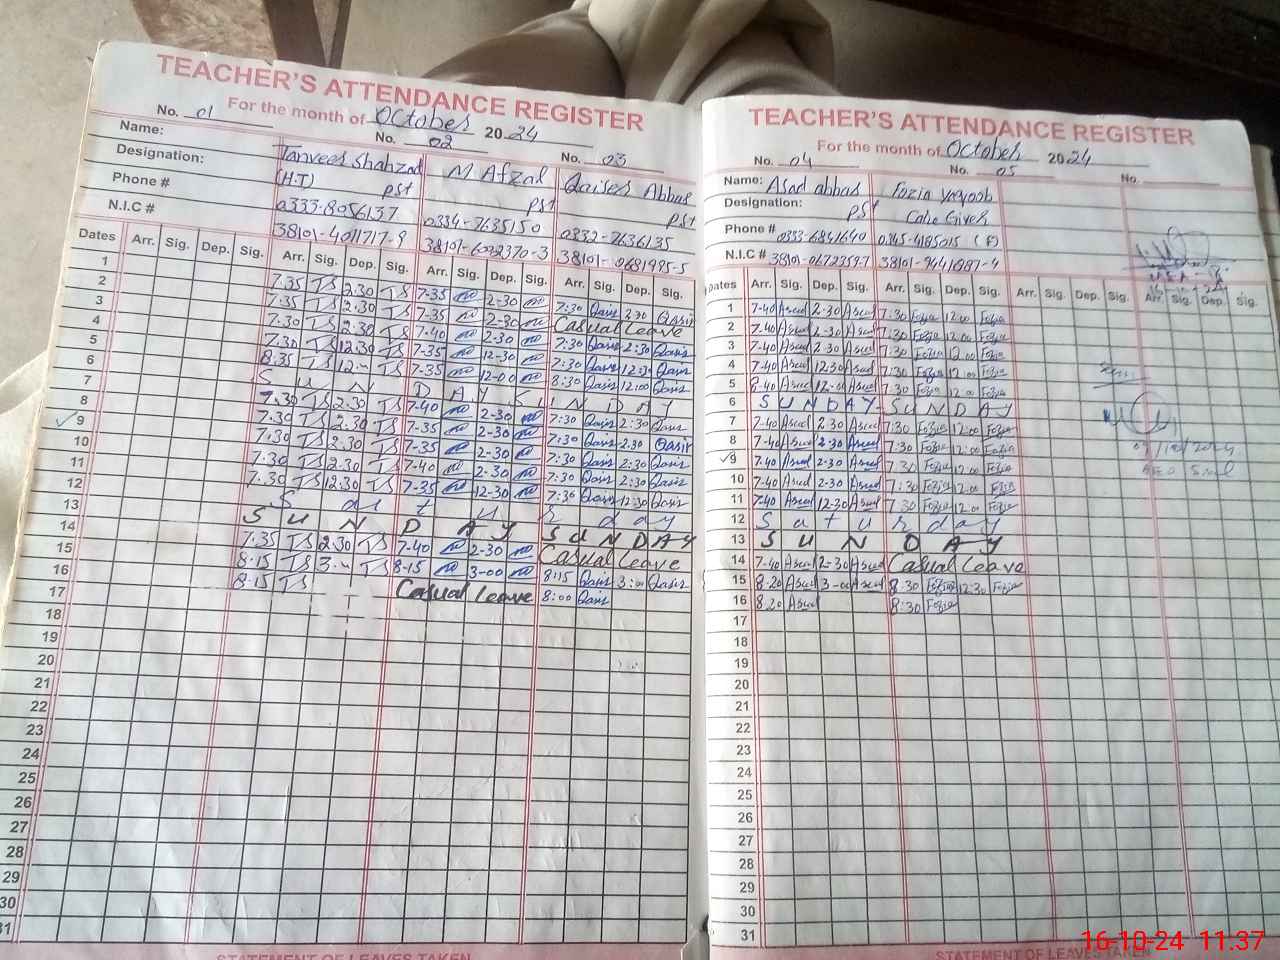 TEACHER'S ATTENDANCE REGISTER
For the month of October 2024
No. 01 No. 02 No. 03
Name: Tanveer Shahzad M Afzal Qaiser Abbas
Designation: (H.T) PST PST PST
Phone # 0333-8056137 0334-7635150 0332-7636135
N.I.C # 38101-4011717-9 38101-6092370-3 38101-0681995-5
Dates Arr. Sig. Dep. Sig. Arr. Sig. Dep. Sig. Arr. Sig. Dep. Sig. Arr. Sig. Dep. Sig.
1 7.35 TS 2.30 TS 7-35 2-30 7:30 Qasir 2:30 Qasir
2 7.35 TS 2.30 TS 7-35 2-30 Casual Leave
3 7.30 TS 2:30 TS 7-40 2-30 7:30 Qasir 2:30 Qasir
4 7.30 TS 12.30 TS 7-35 12-30 7:30 Qasir 12:30 Qasir
5 8.35 TS 12. TS 7-35 12-00 8:30 Qasir 12:00 Qasir
6 S U N D A Y S U N D A Y
7 7.30 TS 2.30 TS 7-40 2-30 7:30 Qasir 2:30 Qasir
8 7.30 TS 2.30 TS 7-35 2-30 7:30 Qasir 2:30 Qasir
9 7.30 TS 2.30 TS 7-35 2-30 7:30 Qasir 2:30 Qasir
10 7.30 TS 2.30 TS 7-40 2-30 7:30 Qasir 2:30 Qasir
11 7.30 TS 12.30 TS 7-35 12-30 7:30 Qasir 12:30 Qasir
12 S a t u r d a y
13 S U N D A Y S U N D A Y
14 7.35 TS 2.30 TS 7-40 2-30 Casual Leave
15 8.15 TS 3. TS 8-15 3-00 8:15 Qasir 3:00 Qasir
16 8.15 TS Casual Leave 8:00 Qasir
17
18
19
20
21
22
23
24
25
26
27
28
29
30
31
STATEMENT OF LEAVES TAKEN
TEACHER'S ATTENDANCE REGISTER
For the month of October 2024
No. 04 No. 05 No.
Name: Asad abbas Fozia Yaqoob
Designation: PST Care Giver
Phone # 0333-6841640 0345-4185015 (F)
N.I.C # 38101-0672359-7 38101-9441087-4
Dates Arr. Sig. Dep. Sig. Arr. Sig. Dep. Sig. Arr. Sig. Dep. Sig. Arr. Sig. Dep. Sig.
1 7-40 Asad 2-30 Asad 7:30 Fozia 12:00 Fozia
2 7-40 Asad 2-30 Asad 7:30 Fozia 12:00 Fozia
3 7-40 Asad 2-30 Asad 7:30 Fozia 12:00 Fozia
4 7-40 Asad 12-30 Asad 7:30 Fozia 12:00 Fozia
5 8-40 Asad 12-00 Asad 7:30 Fozia 12:00 Fozia
6 S U N D A Y S U N D A Y
7 7-40 Asad 2-30 Asad 7:30 Fozia 12:00 Fozia
8 7-40 Asad 2-30 Asad 7:30 Fozia 12:00 Fozia
9 7-40 Asad 2-30 Asad 7:30 Fozia 12:00 Fozia
10 7-40 Asad 2-30 Asad 7:30 Fozia 12:00 Fozia
11 7-40 Asad 12-30 Asad 7:30 Fozia 12:00 Fozia
12 S a t u r d a y
13 S U N D A Y
14 7-40 Asad 2-30 Asad Casual Leave
15 8-20 Asad 3-00 Asad 8:30 Fozia 12:30 Fozia
16 8-20 Asad 8:30 Fozia
17
18
19
20
21
22
23
24
25
26
27
28
29
30
31
STATEMENT OF LEAVES TAKEN
16-10-24 11:37